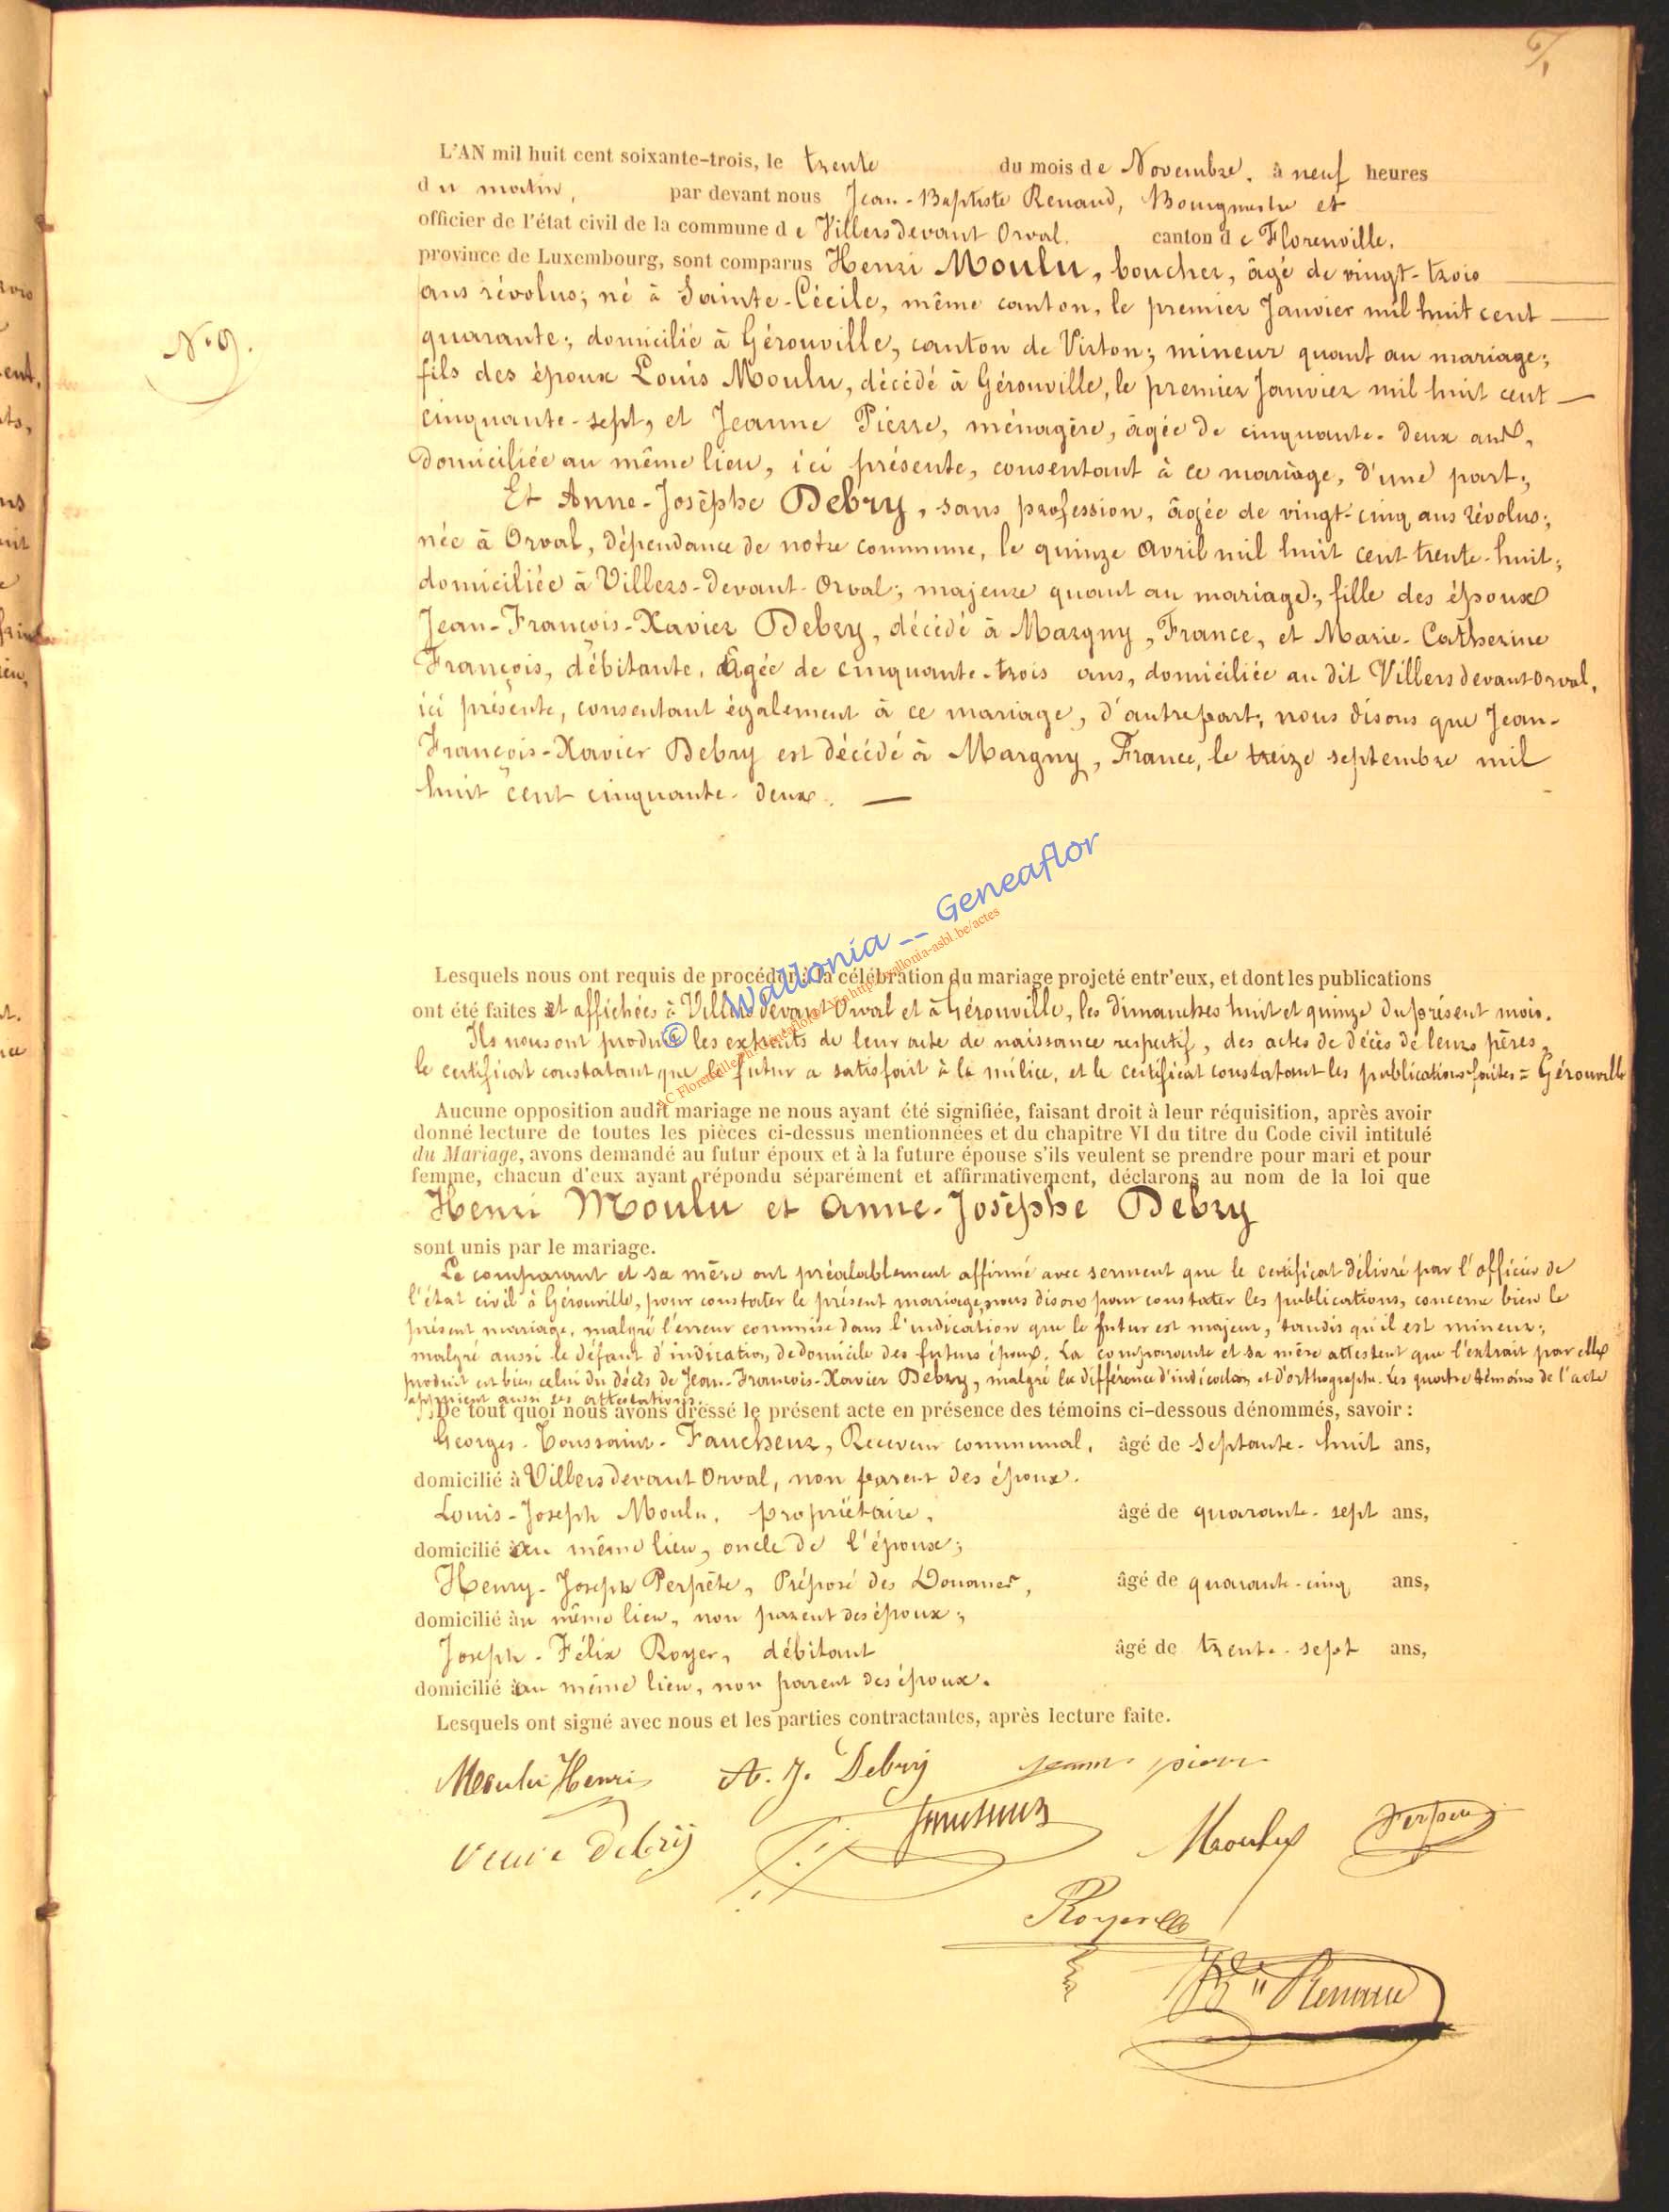 L'AN mil huit cent soixante-trois, le trente du mois de Novembre, à neuf heures
du matin, par devant nous Jean-Baptiste Renaud, Bourgmestre et
officier de l'état civil de la commune de Villers devant Orval. canton de Florenville,
province de Luxembourg, sont comparus Henri Moulu, boucher, âgé de vingt-trois
ans révolus; né à Sainte-Cécile, même canton, le premier Janvier mil huit cent
N° 9.
quarante; domicilié à Gérouville, canton de Virton; mineur quant au mariage;
fils des époux Louis Moulu, décédé à Gérouville, le premier Janvier mil huit cent
cinquante-sept, et Jeanne Pierre, ménagère, âgée de cinquante-deux ans,
domiciliée au même lieu, ici présente, consentant à ce mariage, d'une part;
Et Anne-Josèphe Debry, sans profession, âgée de vingt-cinq ans révolus;
née à Orval, dépendance de notre commune, le quinze avril mil huit cent trente-huit;
domiciliée à Villers-devant-Orval; majeure quant au mariage; fille des époux
Jean-François-Xavier Debry, décédé à Margny, France, et Marie-Catherine
François, débitante, âgée de cinquante-trois ans, domiciliée au dit Villers devant Orval,
ici présente, consentant également à ce mariage, d'autre part; nous disons que Jean-
François-Xavier Debry est décédé à Margny, France, le treize septembre mil
huit cent cinquante-deux.
© Wallonia -- Geneaflor
Lesquels nous ont requis de procéder à la célébration du mariage projeté entr'eux, et dont les publications
ont été faites et affichées à Villers devant Orval et à Gérouville, les dimanches huit et quinze du présent mois.
Ils nous ont produit les extraits de leur acte de naissance respectif, des actes de décès de leurs pères,
le certificat constatant que le futur a satisfait à la milice, et le certificat constatant les publications faites = Gérouville
Aucune opposition audit mariage ne nous ayant été signifiée, faisant droit à leur réquisition, après avoir
donné lecture de toutes les pièces ci-dessus mentionnées et du chapitre VI du titre du Code civil intitulé
du Mariage, avons demandé au futur époux et à la future épouse s'ils veulent se prendre pour mari et pour
femme, chacun d'eux ayant répondu séparément et affirmativement, déclarons au nom de la loi que
Henri Moulu et Anne-Josèphe Debry
sont unis par le mariage.
Le comparant et sa mère ont préalablement affirmé avec serment que le certificat délivré par l'officier de
l'état civil à Gérouville, pour constater le présent mariage, nous disons pour constater les publications, concerne bien le
présent mariage, malgré l'erreur commise dans l'indication que le futur est majeur, tandis qu'il est mineur;
malgré aussi le défaut d'indication de domicile des futurs époux. La comparante et sa mère attestent que l'extrait par elles
produit est bien celui du décès de Jean-François-Xavier Debry, malgré la différence d'indication et d'orthographe. Les quatre témoins de l'acte
appuient aussi ces attestations.
De tout quoi nous avons dressé le présent acte en présence des témoins ci-dessous dénommés, savoir :
Georges-Toussaint-Faucheur, Receveur communal, âgé de septante-huit ans,
domicilié à Villers devant Orval, non parent des époux.
Louis-Joseph Moulu, propriétaire, âgé de quarante-sept ans,
domicilié au même lieu, oncle de l'époux;
Henry-Joseph Perpète, Préposé des Douanes, âgé de quarante-cinq ans,
domicilié au même lieu, non parent des époux;
Joseph-Félix Royer, débitant âgé de trente-sept ans,
domicilié au même lieu, non parent des époux.
Lesquels ont signé avec nous et les parties contractantes, après lecture faite.
Moulu Henri A. J. Debry Jeanne pierre
veuve Debry Faucheur Moulu Perpète
Royer
Renaud